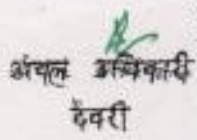 अंचल अधिकारी
देवरी